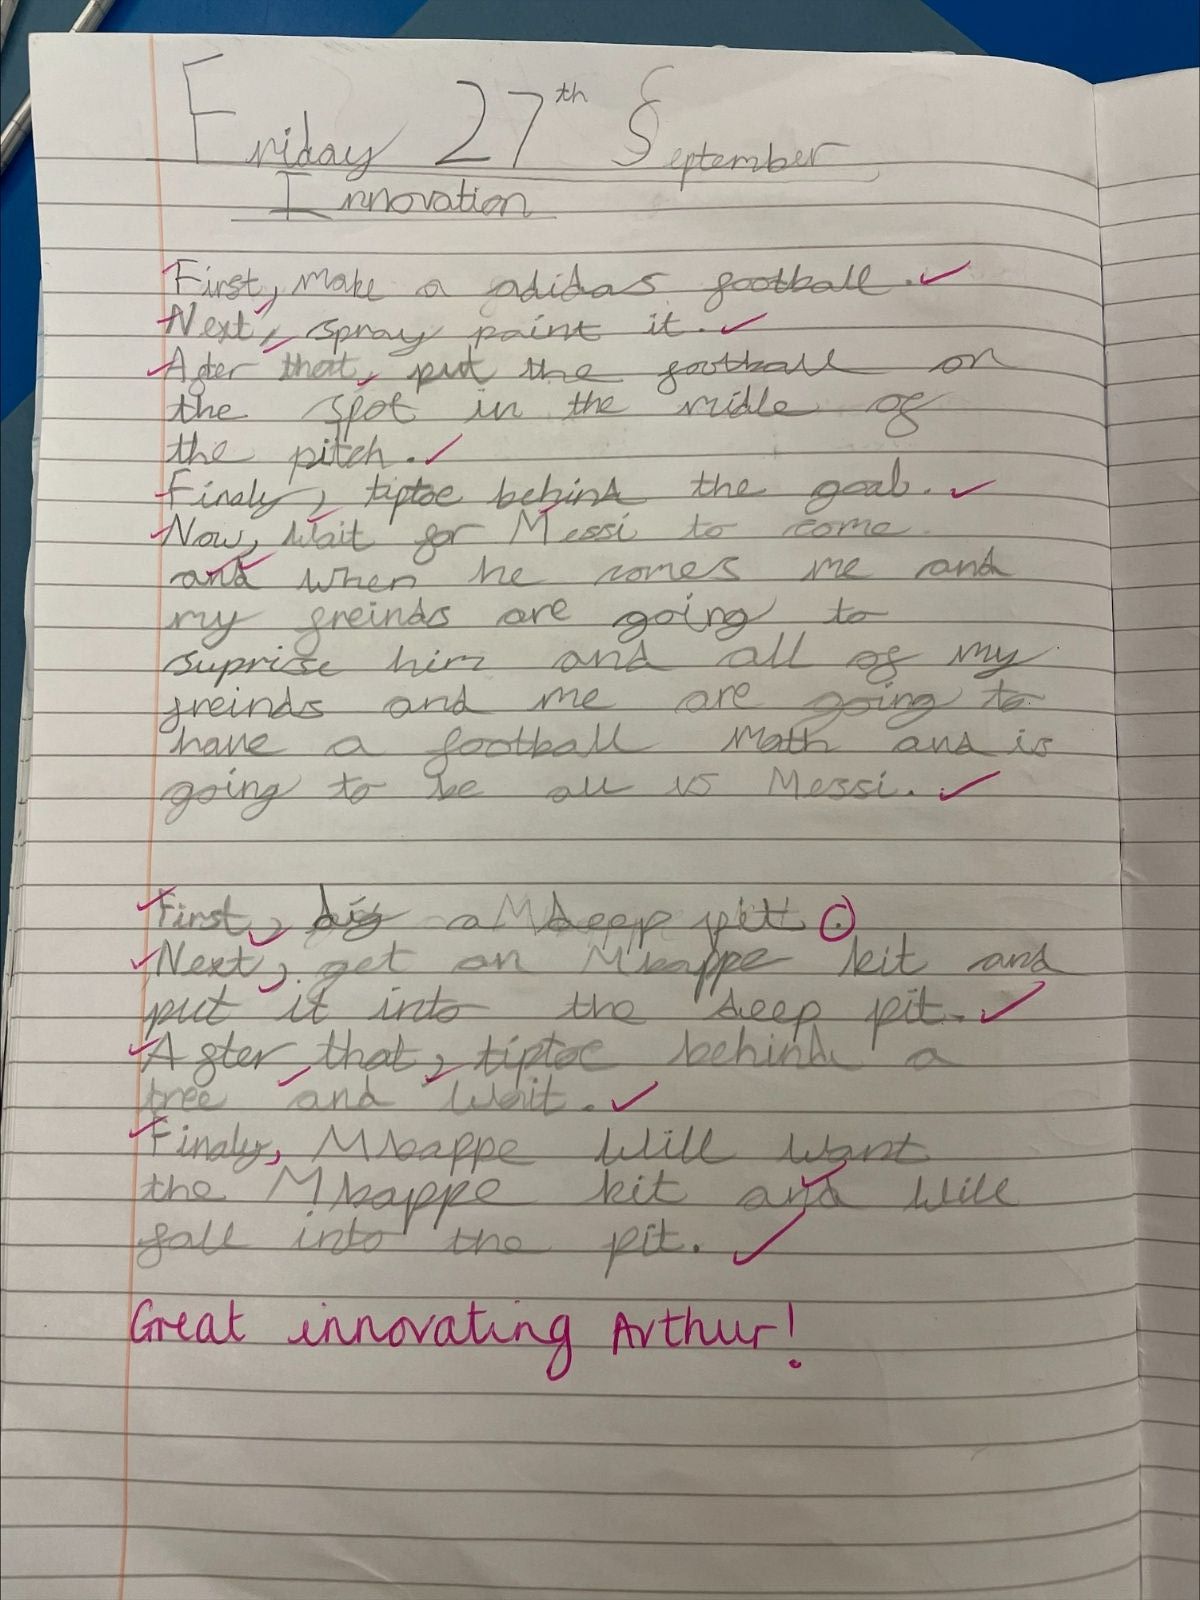 Friday 27th September
Innovation
First, make a adidas football.
Next, spray paint it.
After that, put the football on
the spot in the midle of
the pitch.
Finaly, tiptoe behind the goal.
Now, wait for Messi to come
and when he comes me and
my freinds are going to
suprise him and all of my
freinds and me are going to
have a football math and is
going to be all vs Messi.
First, dig a deep pitt.
Next, get an Mbappe kit and
put it into the deep pit.
After that, tiptoe behind a
tree and wait.
Finaly, Mbappe will want
the Mbappe kit and will
fall into the pit.
Great innovating Arthur!